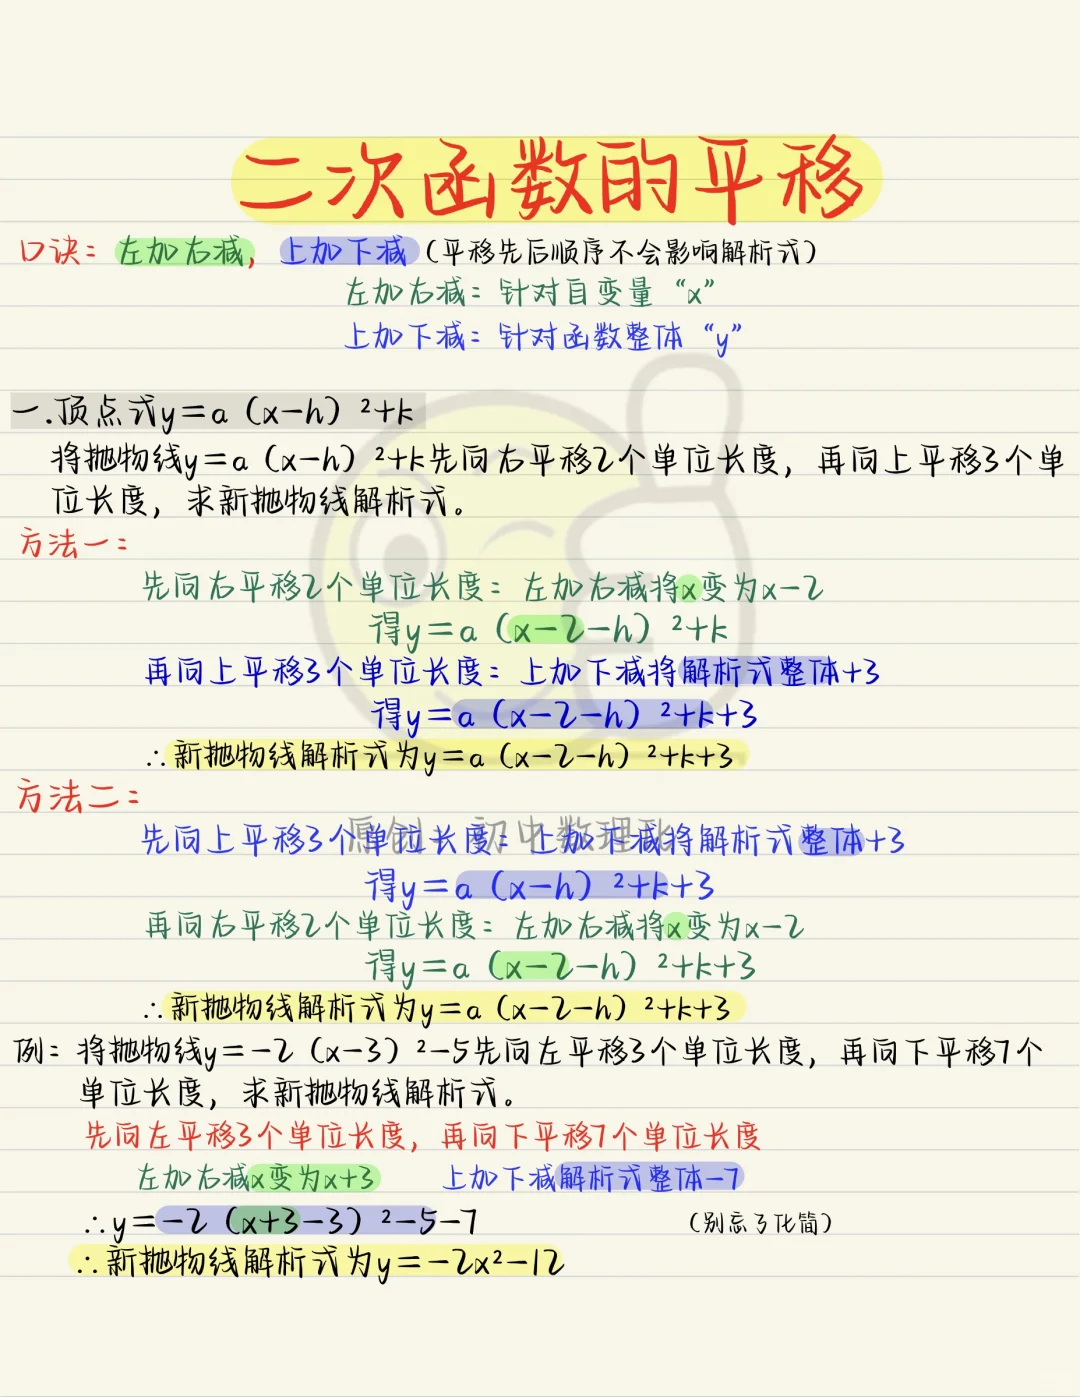 二次函数的平移
口诀：左加右减，上加下减（平移先后顺序不会影响解析式）
左加右减：针对自变量“x”
上加下减：针对函数整体“y”
一.顶点式y=a（x-h）²+k
将抛物线y=a（x-h）²+k先向右平移2个单位长度，再向上平移3个单
位长度，求新抛物线解析式。
方法一：
先向右平移2个单位长度：左加右减将x变为x-2
得y=a（x-2-h）²+k
再向上平移3个单位长度：上加下减将解析式整体+3
得y=a（x-2-h）²+k+3
∴新抛物线解析式为y=a（x-2-h）²+k+3
方法二：
先向上平移3个单位长度：上加下减将解析式整体+3
得y=a（x-h）²+k+3
再向右平移2个单位长度：左加右减将x变为x-2
得y=a（x-2-h）²+k+3
∴新抛物线解析式为y=a（x-2-h）²+k+3
例：将抛物线y=-2（x-3）²-5先向左平移3个单位长度，再向下平移7个
单位长度，求新抛物线解析式。
先向左平移3个单位长度，再向下平移7个单位长度
左加右减x变为x+3 上加下减解析式整体-7
∴y=-2（x+3-3）²-5-7 （别忘了化简）
∴新抛物线解析式为y=-2x²-12